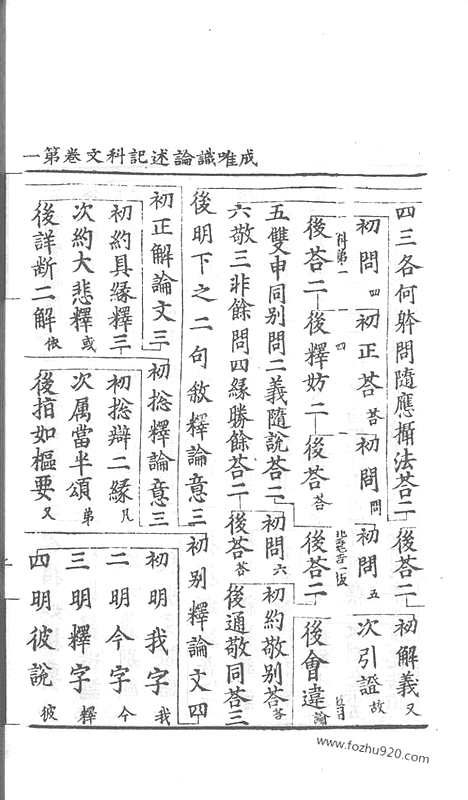 成唯識論述記科文卷第一
四三各何躰問隨應攝法荅二 後荅二 初解義又
初問四 初正荅荅 初問問 初問五 次引證故
後荅二 後釋妨二 後荅荅 後荅二 後會違論
五雙申同别問二義隨說荅二 初問六 初約敬别荅荅
六敬三非餘問四緣勝餘荅二 後荅荅 後通敬同荅三
後明下之二句敘釋論意三 初别釋論文四
初正解論文三 初捴釋論意三 初明我字我
初約具緣釋三 初捴辯二緣凡 二明今字今
次約大悲釋或 次属當半頌弟 三明釋字釋
後詳断二解依 後指如樞要又 四明彼說彼
www.fozhu920.com